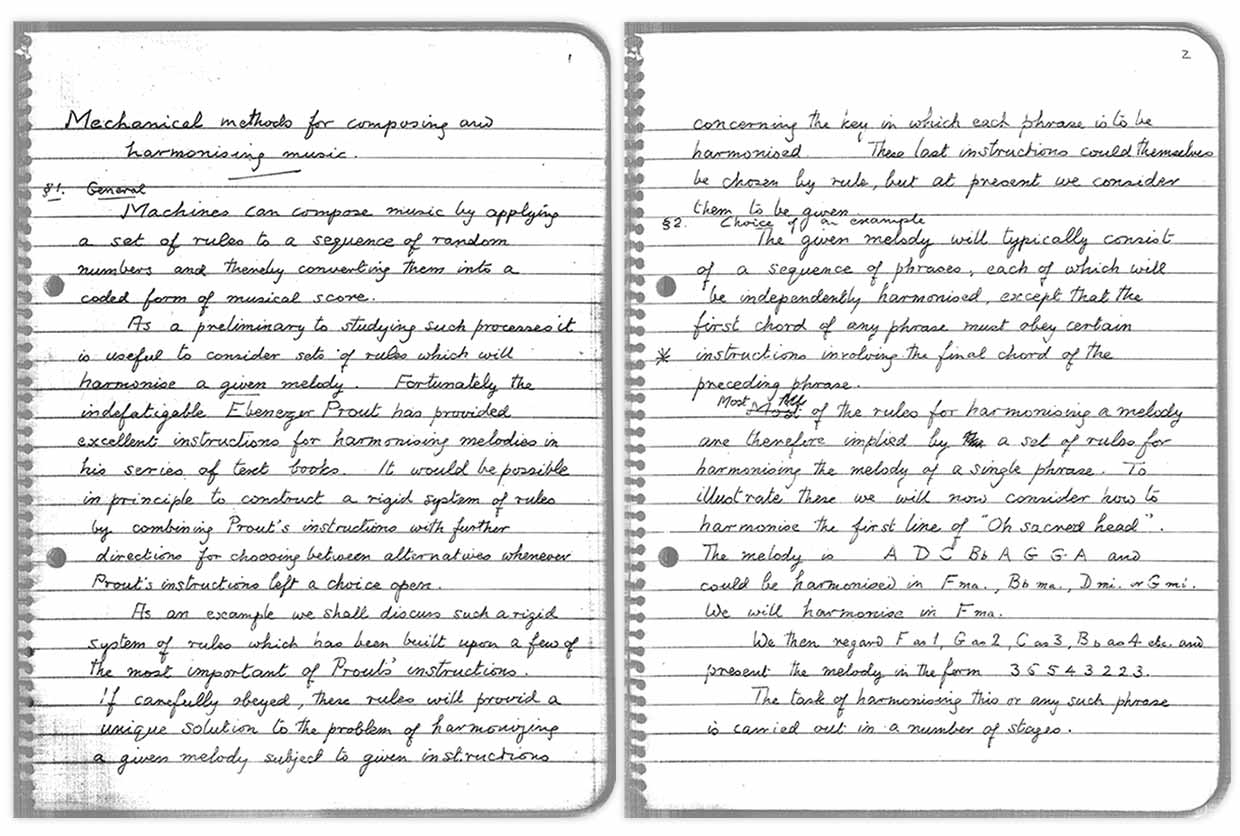 1
Mechanical methods for composing and
harmonising music.
§1. General
Machines can compose music by applying
a set of rules to a sequence of random
numbers and thereby converting them into a
coded form of musical score.
As a preliminary to studying such processes it
is useful to consider sets of rules which will
harmonise a given melody. Fortunately the
indefatigable Ebenezer Prout has provided
excellent instructions for harmonising melodies in
his series of text books. It would be possible
in principle to construct a rigid system of rules
by combining Prout's instructions with further
directions for choosing between alternatives whenever
Prout's instructions left a choice open.
As an example we shall discuss such a rigid
system of rules which has been built upon a few of
the most important of Prout's instructions.
If carefully obeyed, these rules will provid a
unique solution to the problem of harmonizing
a given melody subject to given instructions
2
concerning the key in which each phrase is to be
harmonised. These last instructions could themselves
be chosen by rule, but at present we consider
them to be given
§2. Choice of an example
The given melody will typically consist
of a sequence of phrases, each of which will
be independently harmonised, except that the
first chord of any phrase must obey certain
* instructions involving the final chord of the
preceding phrase.
Most of the rules for harmonising a melody
are therefore implied by a set of rules for
harmonising the melody of a single phrase. To
illustrate these we will now consider how to
harmonise the first line of "Oh sacred head".
The melody is A D C Bb A G G A and
could be harmonised in F ma., Bb ma., D mi. or G mi.
We will harmonise in F ma.
We then regard F as 1, G as 2, C as 3, Bb as 4 etc. and
present the melody in the form 3 6 5 4 3 2 2 3.
The task of harmonising this or any such phrase
is carried out in a number of stages.